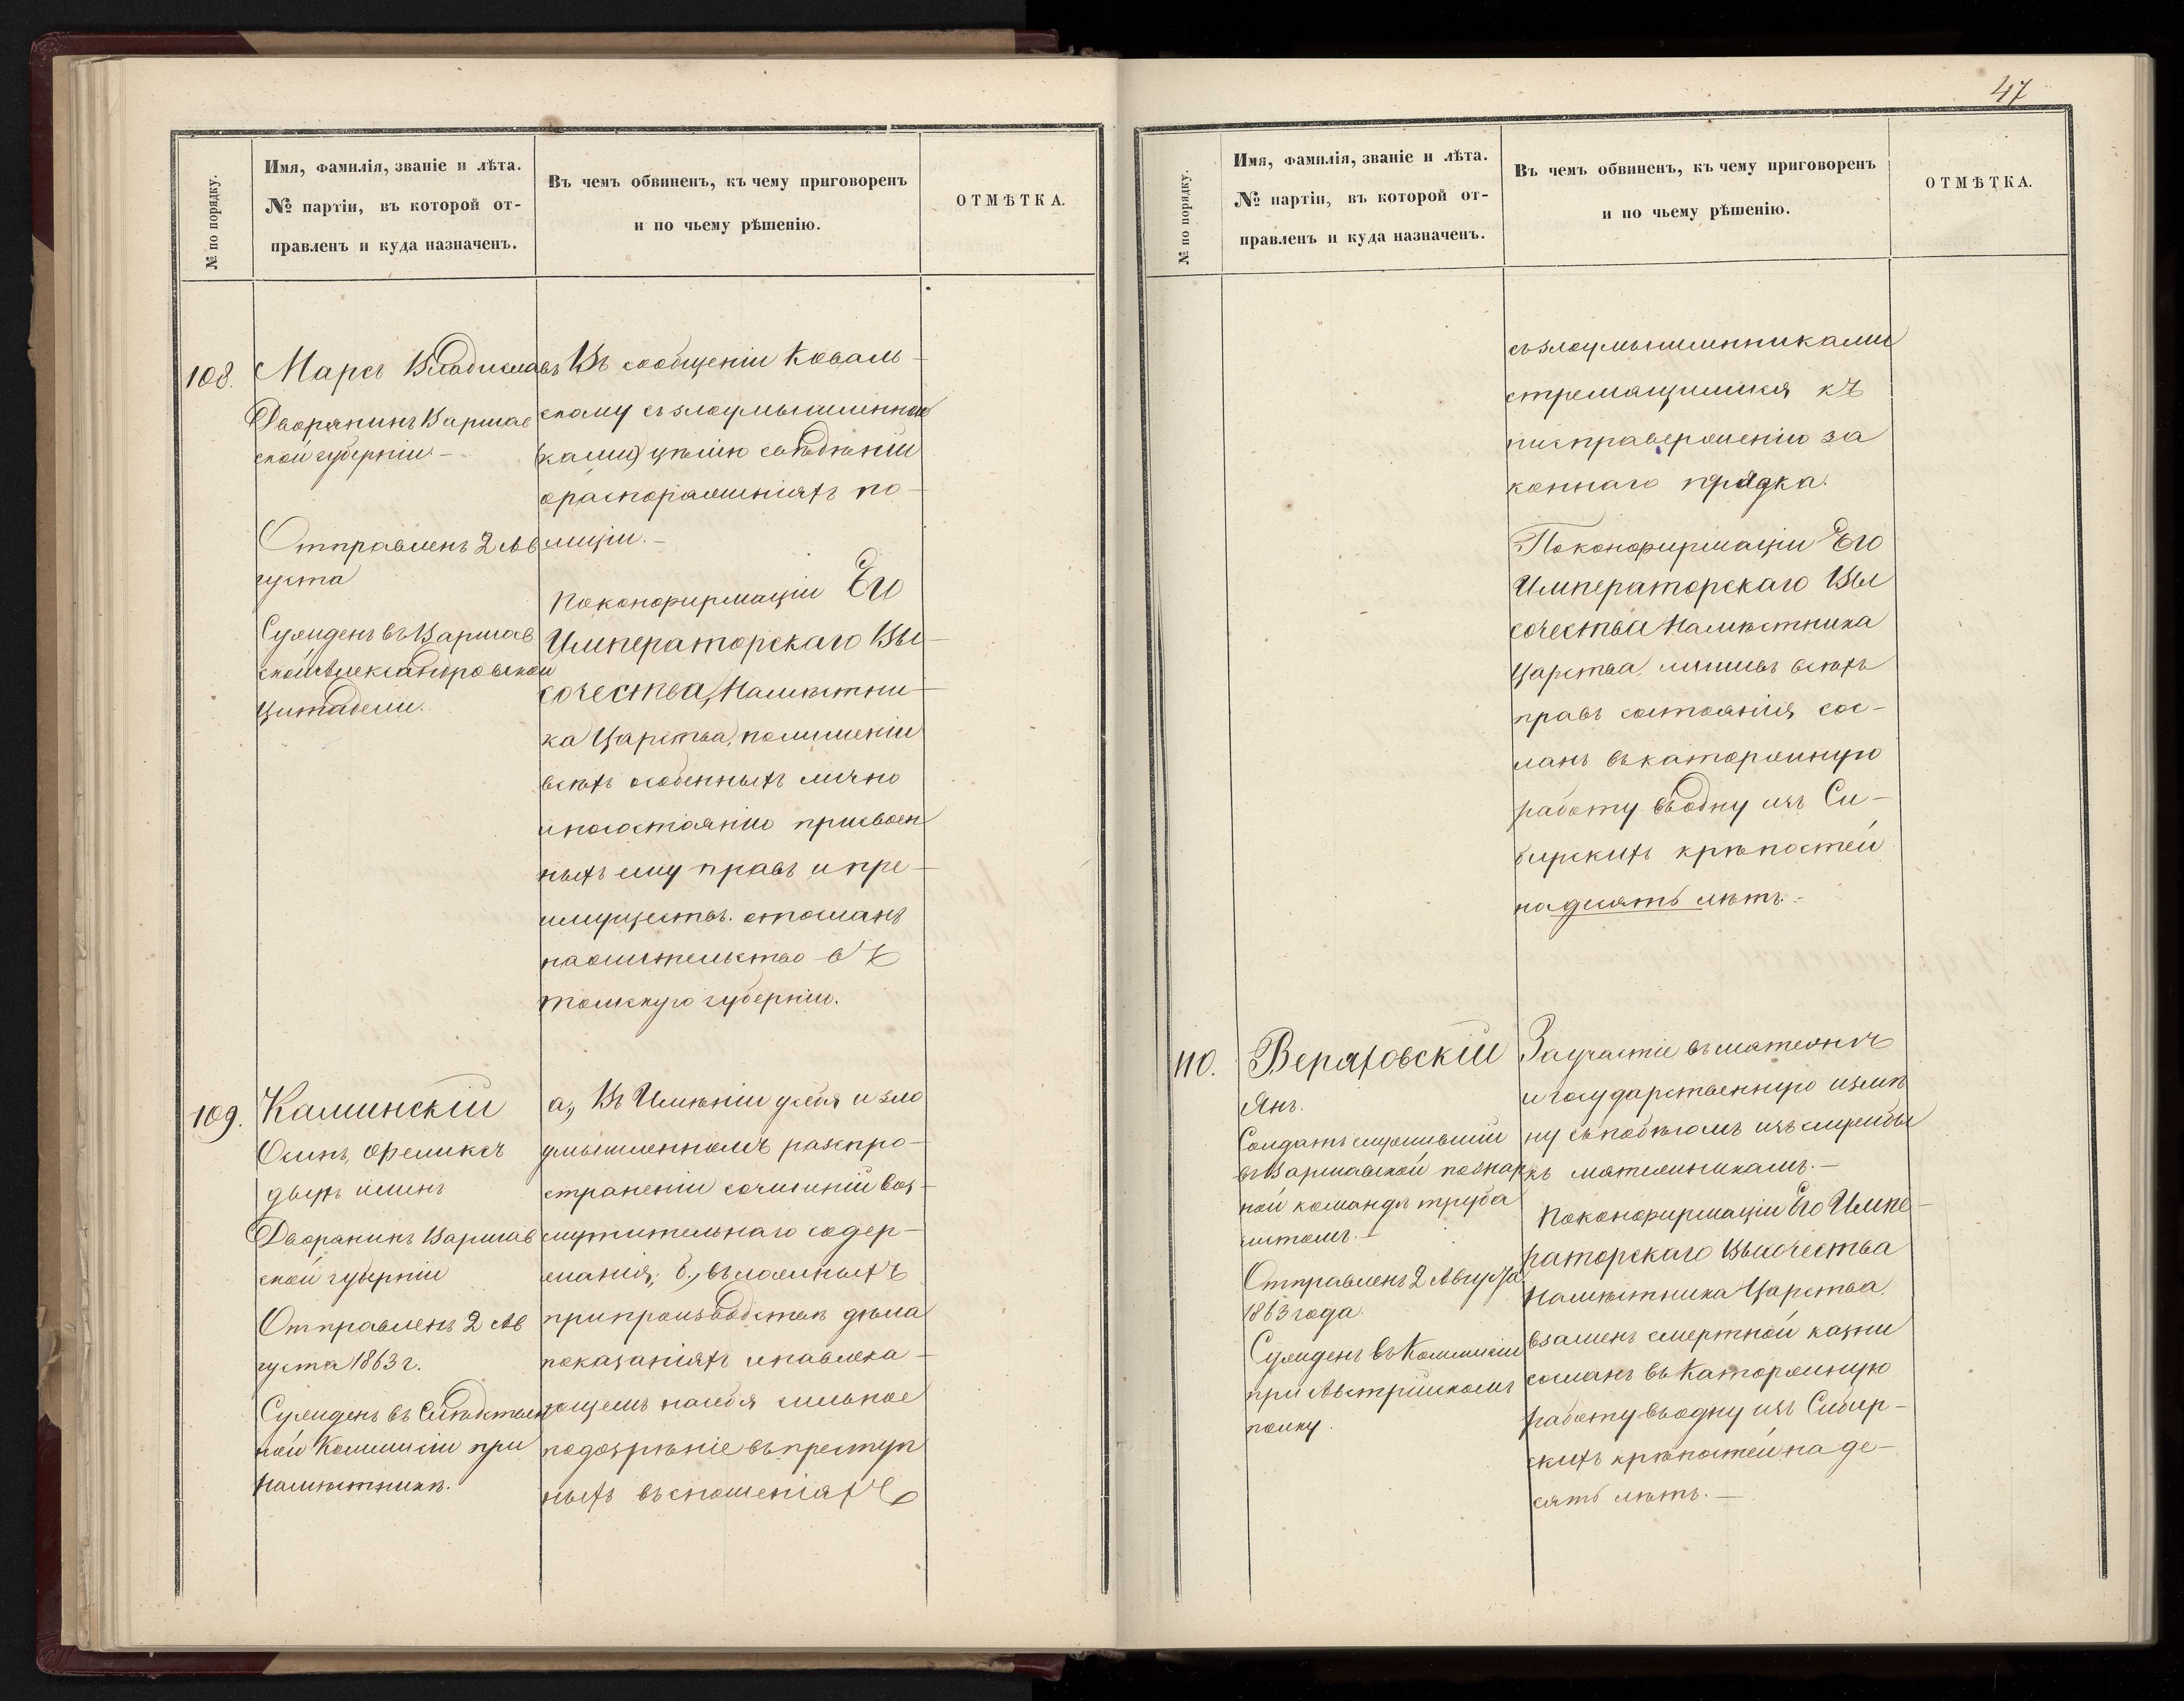 47
№ по порядку.
Имя, фамилія, званіе и лѣта.
№ партіи, въ которой от-
правленъ и куда назначенъ.
Въ чемъ обвиненъ, къ чему приговоренъ
и по чьему рѣшенію.
ОТМѢТКА.
108.
Марсъ Владиславъ
Дворянинъ Варшав
ской губерніи. –
Отправленъ 2 Ав
густа
Сужденъ въ Варшав
ской Александровской
Цитадели.
Въ сообщеніи Коваль-
скому съ злоумышленно
цѣлію свѣдѣній
о распоряженіяхъ по-
лиціи. –
По конфирмаціи Его
Императорскаго Вы-
сочества, Намѣстни-
ка Царства, по лишеніи
всѣхъ особенныхъ лично
и по состоянію присвоен
ныхъ ему правъ и пре-
имуществъ. сосланъ
на жительство въ
Томскую губернію.
109.
Каминскій
Осипъ, Феликсъ
двухъ именъ
Дворянинъ Варшав
ской губерніи
Отправленъ 2 Ав
густа 1863 г.
Сужденъ въ Слѣдствен
ной Коммисіи при
Намѣстникѣ.
а, Въ Имѣніи у себя и зло
умышленномъ распро-
страненіи сочиненій воз-
мутительнаго содер-
жанія; б, въ ложныхъ
при производствѣ дѣла
показаніяхъ и навлека-
ющемъ на себя сильное
подозрѣніе въ преступ
ныхъ въ сношеніяхъ
№ по порядку.
Имя, фамилія, званіе и лѣта.
№ партіи, въ которой от-
правленъ и куда назначенъ.
Въ чемъ обвиненъ, къ чему приговоренъ
и по чьему рѣшенію.
ОТМѢТКА.
съ злоумышленниками
стремящимися къ
ниспроверженію за
коннаго порядка.
По конфирмаціи Его
Императорскаго Вы
сочества Намѣстника
Царства, лишивъ всѣхъ
правъ состоянія сос-
ланъ въ каторжную
работу въ одну изъ Си-
бирскихъ крѣпостей
на десять лѣтъ. –
110.
Вераховскій
Янъ.
Солдатъ служившій
въ Варшавской пожар
ной командѣ труба
чистомъ. –
Отправленъ 2 Августа
1863 года.
Сужденъ въ Коммисіи
при Австрійскомъ
полку.
За участіе въ мятежѣ
и государственную измѣ
ну съ побѣгомъ изъ службы
къ мятежникамъ. –
По конфирмаціи Его Импе-
раторскаго Высочества
Намѣстника Царства,
взаменъ смертной казни
сосланъ въ Каторжную
работу въ одну изъ Сибир-
скихъ крѣпостей на де-
сять лѣтъ. –